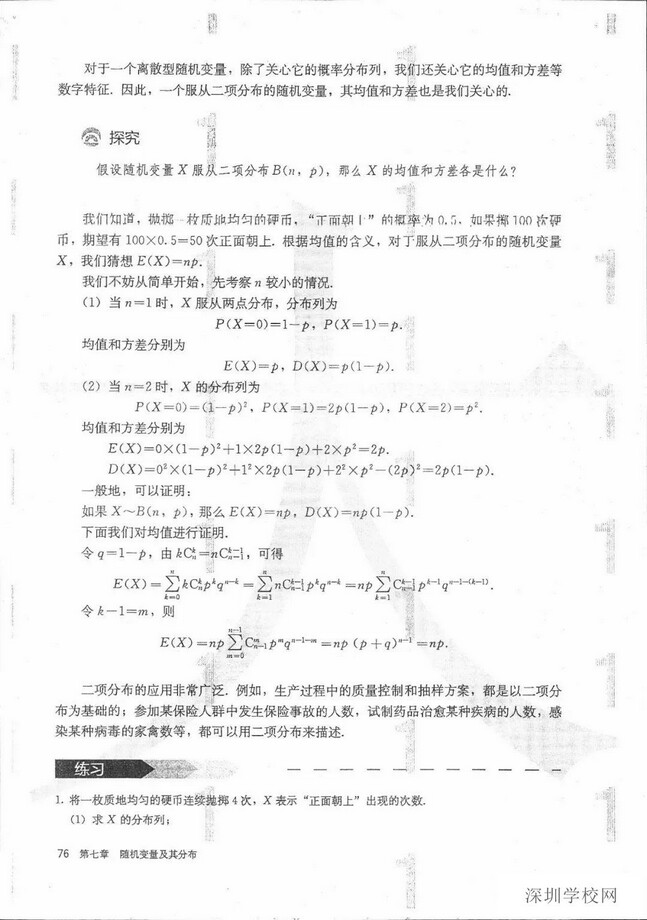 对于一个离散型随机变量，除了关心它的概率分布列，我们还关心它的均值和方差等
数字特征. 因此，一个服从二项分布的随机变量，其均值和方差也是我们关心的.
探究
假设随机变量 X 服从二项分布 B(n, p)，那么 X 的均值和方差各是什么？
我们知道，抛掷一枚质地均匀的硬币，“正面朝上”的概率为 0.5，如果掷 100 次硬
币，期望有 100×0.5=50 次正面朝上. 根据均值的含义，对于服从二项分布的随机变量
X，我们猜想 E(X)=np.
我们不妨从简单开始，先考察 n 较小的情况.
(1) 当 n=1 时，X 服从两点分布，分布列为
P(X=0)=1-p，P(X=1)=p.
均值和方差分别为
E(X)=p，D(X)=p(1-p).
(2) 当 n=2 时，X 的分布列为
P(X=0)=(1-p)²，P(X=1)=2p(1-p)，P(X=2)=p².
均值和方差分别为
E(X)=0×(1-p)²+1×2p(1-p)+2×p²=2p.
D(X)=0²×(1-p)²+1²×2p(1-p)+2²×p²-(2p)²=2p(1-p).
一般地，可以证明：
如果 X~B(n, p)，那么 E(X)=np，D(X)=np(1-p).
下面我们对均值进行证明.
令 q=1-p，由 kC_n^k=nC_{n-1}^{k-1}，可得
E(X)=∑_{k=0}^{n} kC_n^k p^k q^{n-k}=∑_{k=1}^{n} nC_{n-1}^{k-1} p^k q^{n-k}=np∑_{k=1}^{n} C_{n-1}^{k-1} p^{k-1} q^{n-1-(k-1)}.
令 k-1=m，则
E(X)=np∑_{m=0}^{n-1} C_{n-1}^m p^m q^{n-1-m}=np(p+q)^{n-1}=np.
二项分布的应用非常广泛. 例如，生产过程中的质量控制和抽样方案，都是以二项分
布为基础的；参加某保险人群中发生保险事故的人数，试制药品治愈某种疾病的人数，感
染某种病毒的家禽数等，都可以用二项分布来描述.
练习
1. 将一枚质地均匀的硬币连续抛掷 4 次，X 表示“正面朝上”出现的次数.
(1) 求 X 的分布列；
76 第七章 随机变量及其分布
深圳学校网